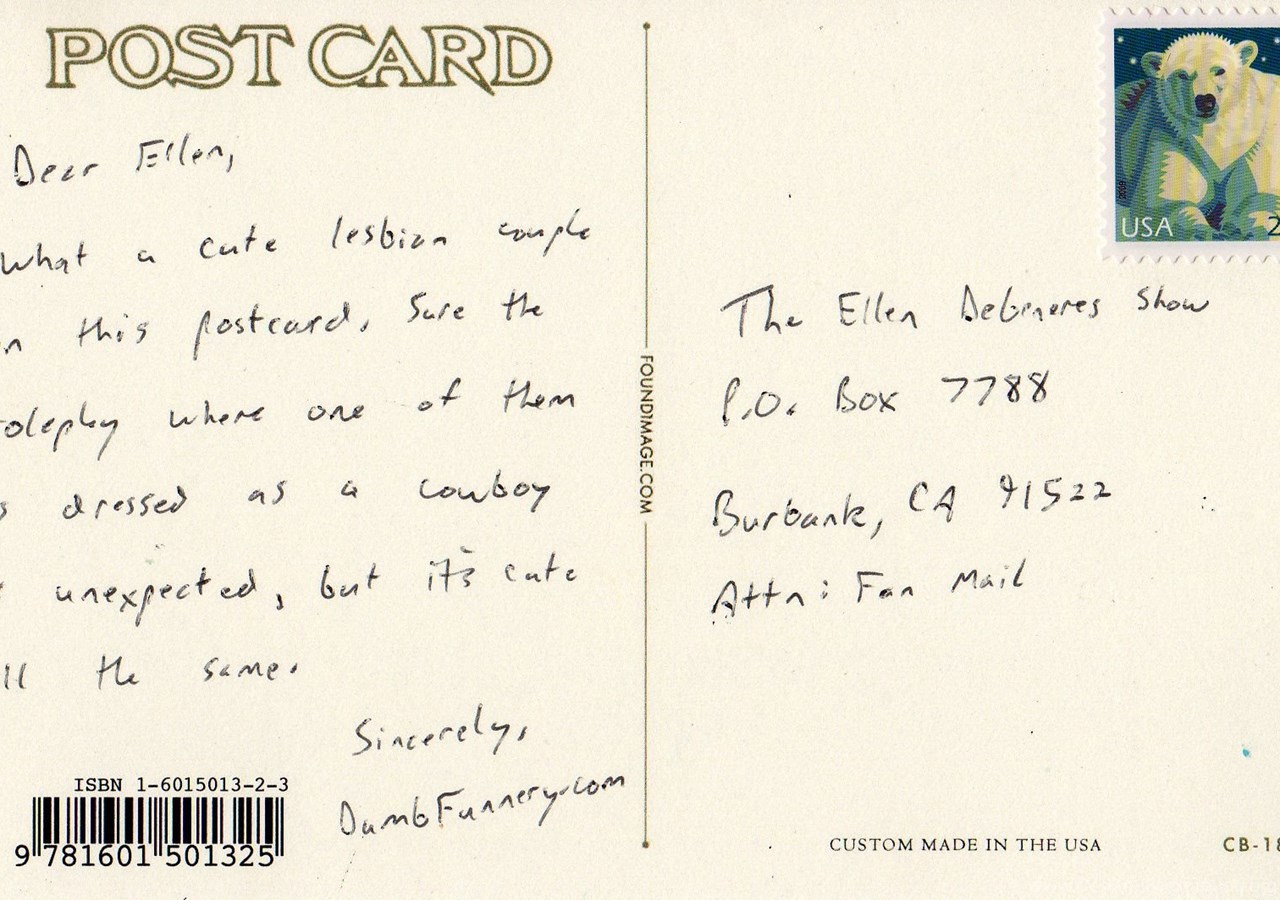 POST CARD
Dear Ellen,
What a cute lesbian couple
n this postcard. Sure the
oleplay where one of them
s dressed as a cowboy
unexpected, but it's cute
ll the same.
Sincerely,
DumbFunnery.com
ISBN 1-6015013-2-3
9 781601 501325
FOUNDIMAGE.COM
USA 2
2009
The Ellen Degeneres Show
P.O. Box 7788
Burbank, CA 91522
Attn: Fan Mail
CUSTOM MADE IN THE USA
CB-18